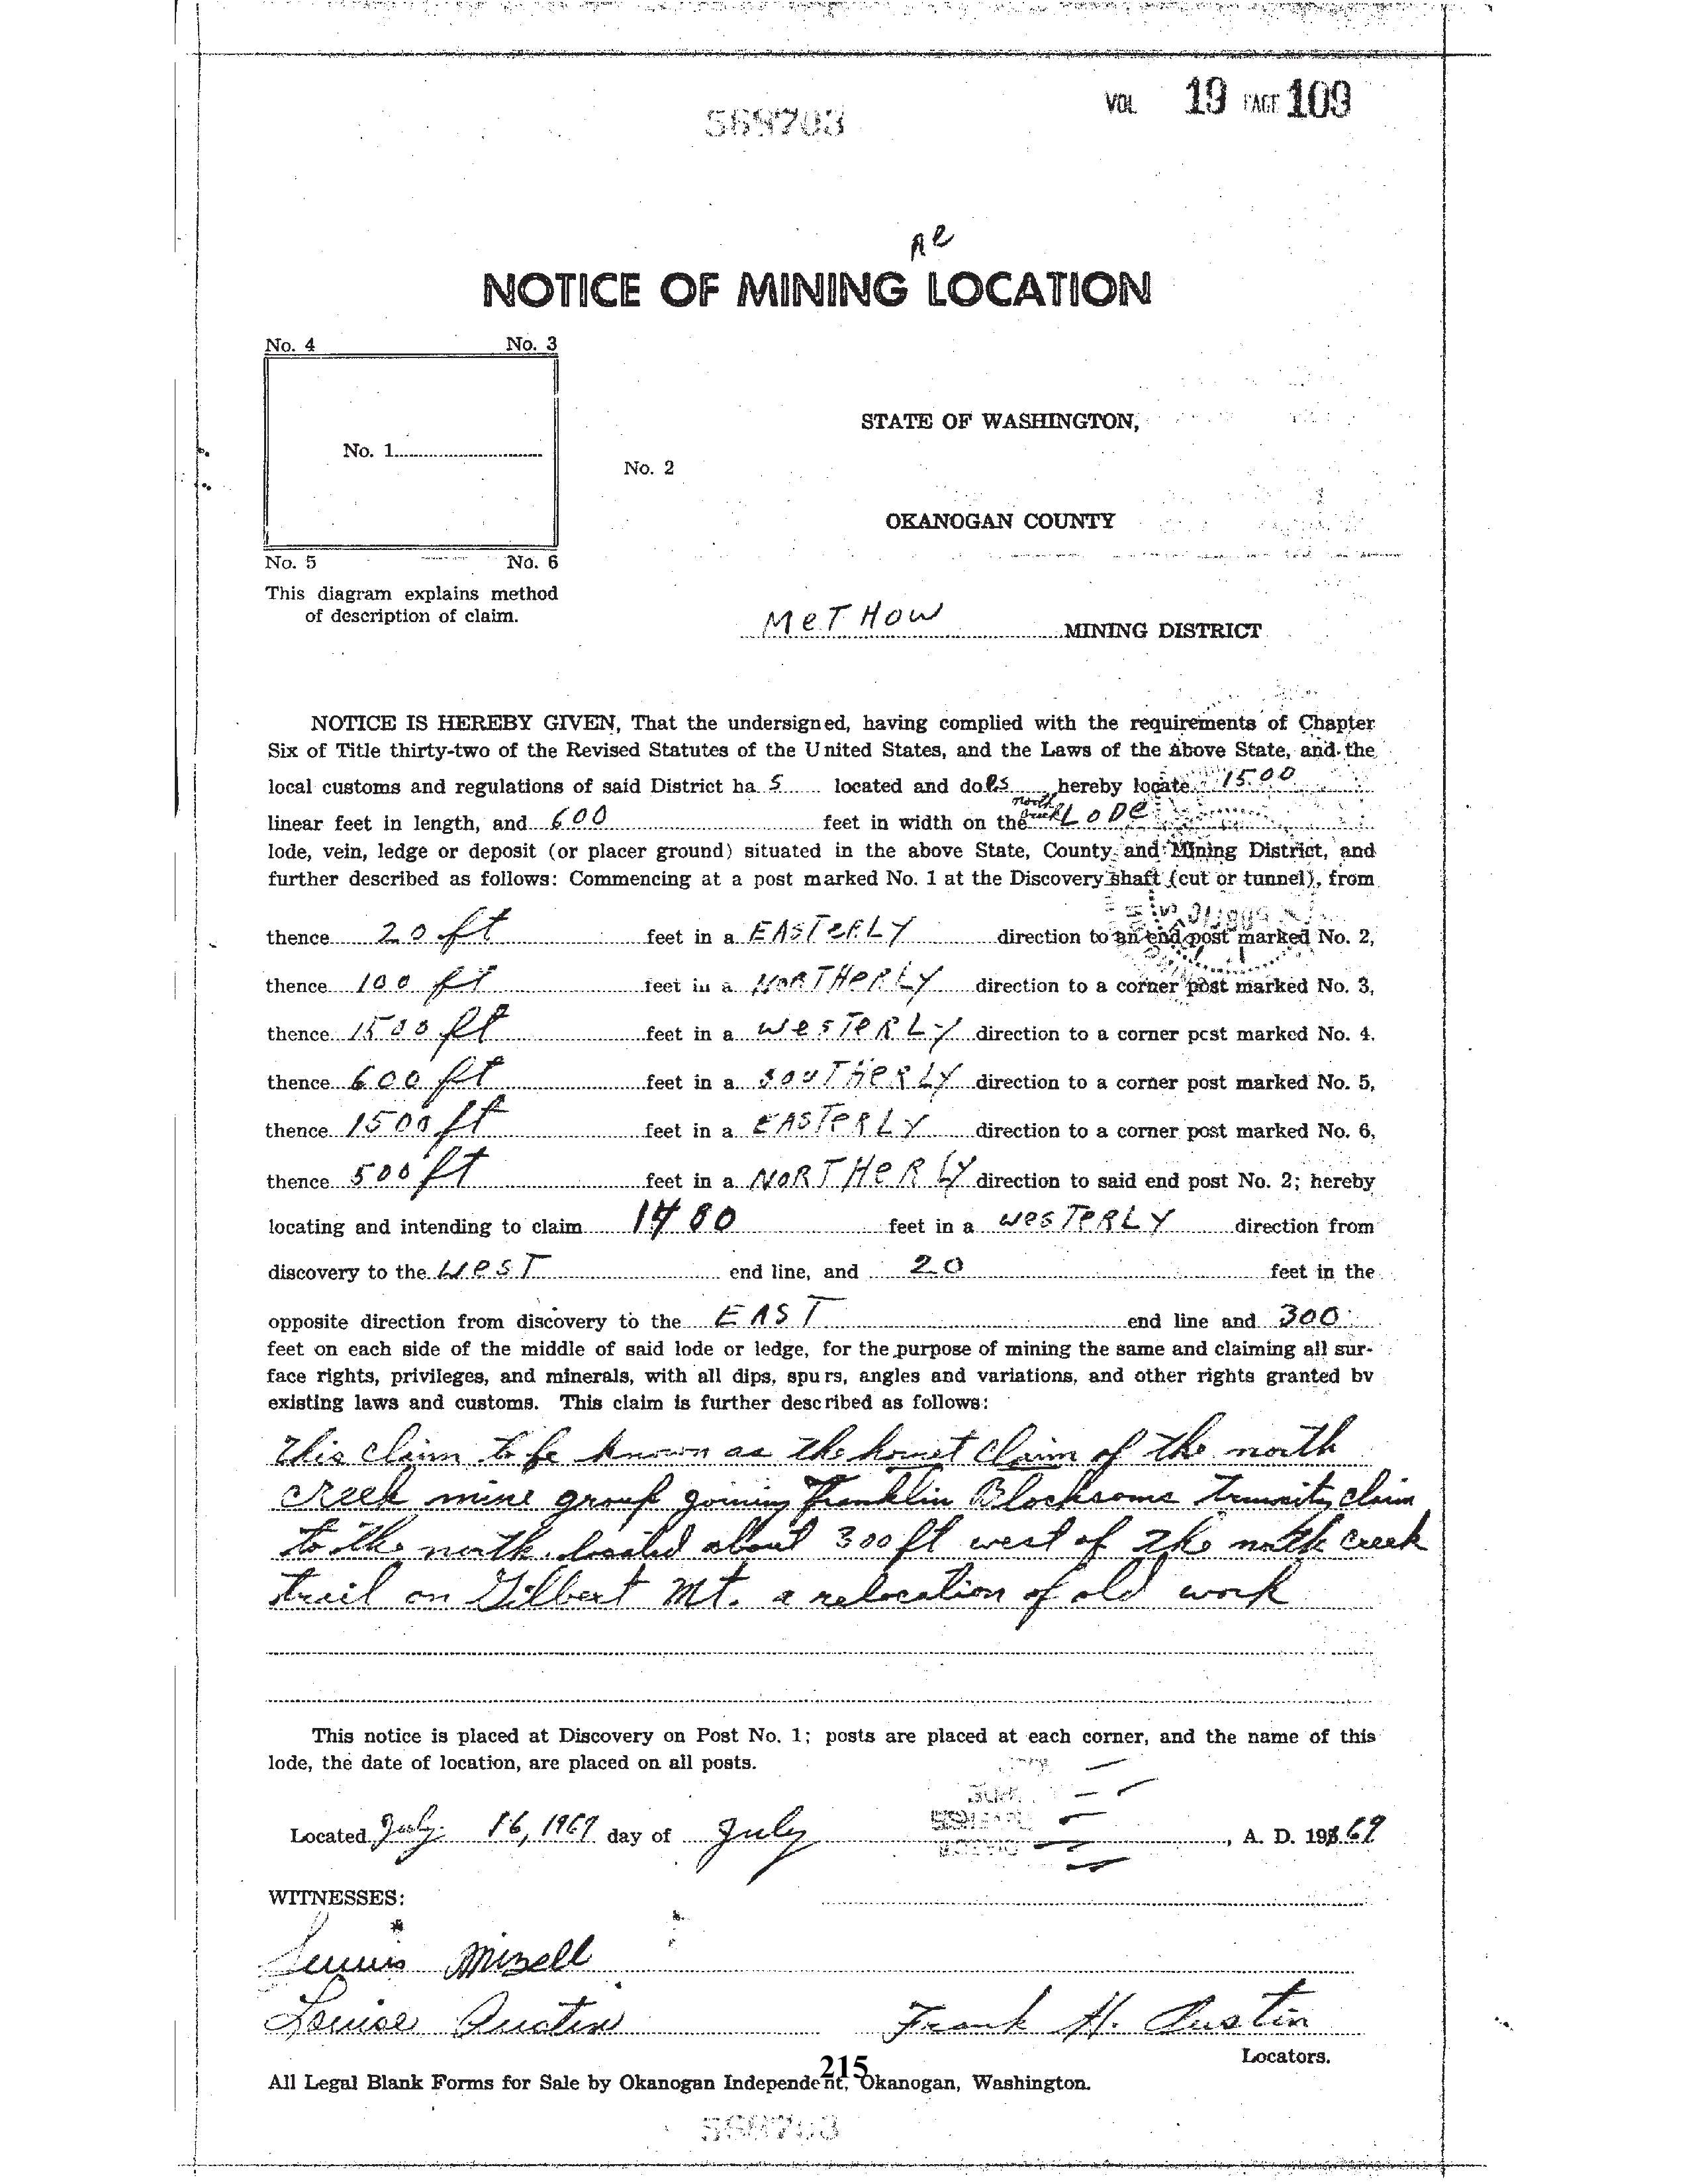 VOL 19 PAGE 109
569703
NOTICE OF MINING LOCATION
No. 4 No. 3
No. 1
No. 2
No. 5 No. 6
This diagram explains method
of description of claim.
STATE OF WASHINGTON,
OKANOGAN COUNTY
MeTHOW MINING DISTRICT
NOTICE IS HEREBY GIVEN, That the undersigned, having complied with the requirements of Chapter
Six of Title thirty-two of the Revised Statutes of the United States, and the Laws of the above State, and the
local customs and regulations of said District ha s located and does hereby locate 1500
linear feet in length, and 600 feet in width on the north creek LODe
lode, vein, ledge or deposit (or placer ground) situated in the above State, County and Mining District, and
further described as follows: Commencing at a post marked No. 1 at the Discovery shaft (cut or tunnel), from
thence 20 ft feet in a EASTeRLY direction to an end post marked No. 2,
thence 100 ft feet in a NORTHeRLY direction to a corner post marked No. 3,
thence 1500 ft feet in a WesTeRLY direction to a corner post marked No. 4.
thence 600 ft feet in a SOUTHeRLY direction to a corner post marked No. 5,
thence 1500 ft feet in a EASTeRLY direction to a corner post marked No. 6,
thence 500 ft feet in a NORTHeRLY direction to said end post No. 2; hereby
locating and intending to claim 1480 feet in a WesTeRLY direction from
discovery to the WesT end line, and 20 feet in the
opposite direction from discovery to the EAST end line and 300
feet on each side of the middle of said lode or ledge, for the purpose of mining the same and claiming all sur-
face rights, privileges, and minerals, with all dips, spurs, angles and variations, and other rights granted by
existing laws and customs. This claim is further described as follows:
This claim to be known as the hornet claim of the north
creek mine group joining Franklin Blocksoms claim
to the north. located about 300 ft west of the north creek
trail on Gilbert Mt. a relocation of old work
This notice is placed at Discovery on Post No. 1; posts are placed at each corner, and the name of this
lode, the date of location, are placed on all posts.
Located July 16, 1969 day of July, A. D. 1969
WITNESSES:
Mizell
Louise Austin Frank H. Austin
Locators.
215
All Legal Blank Forms for Sale by Okanogan Independent, Okanogan, Washington.
569703